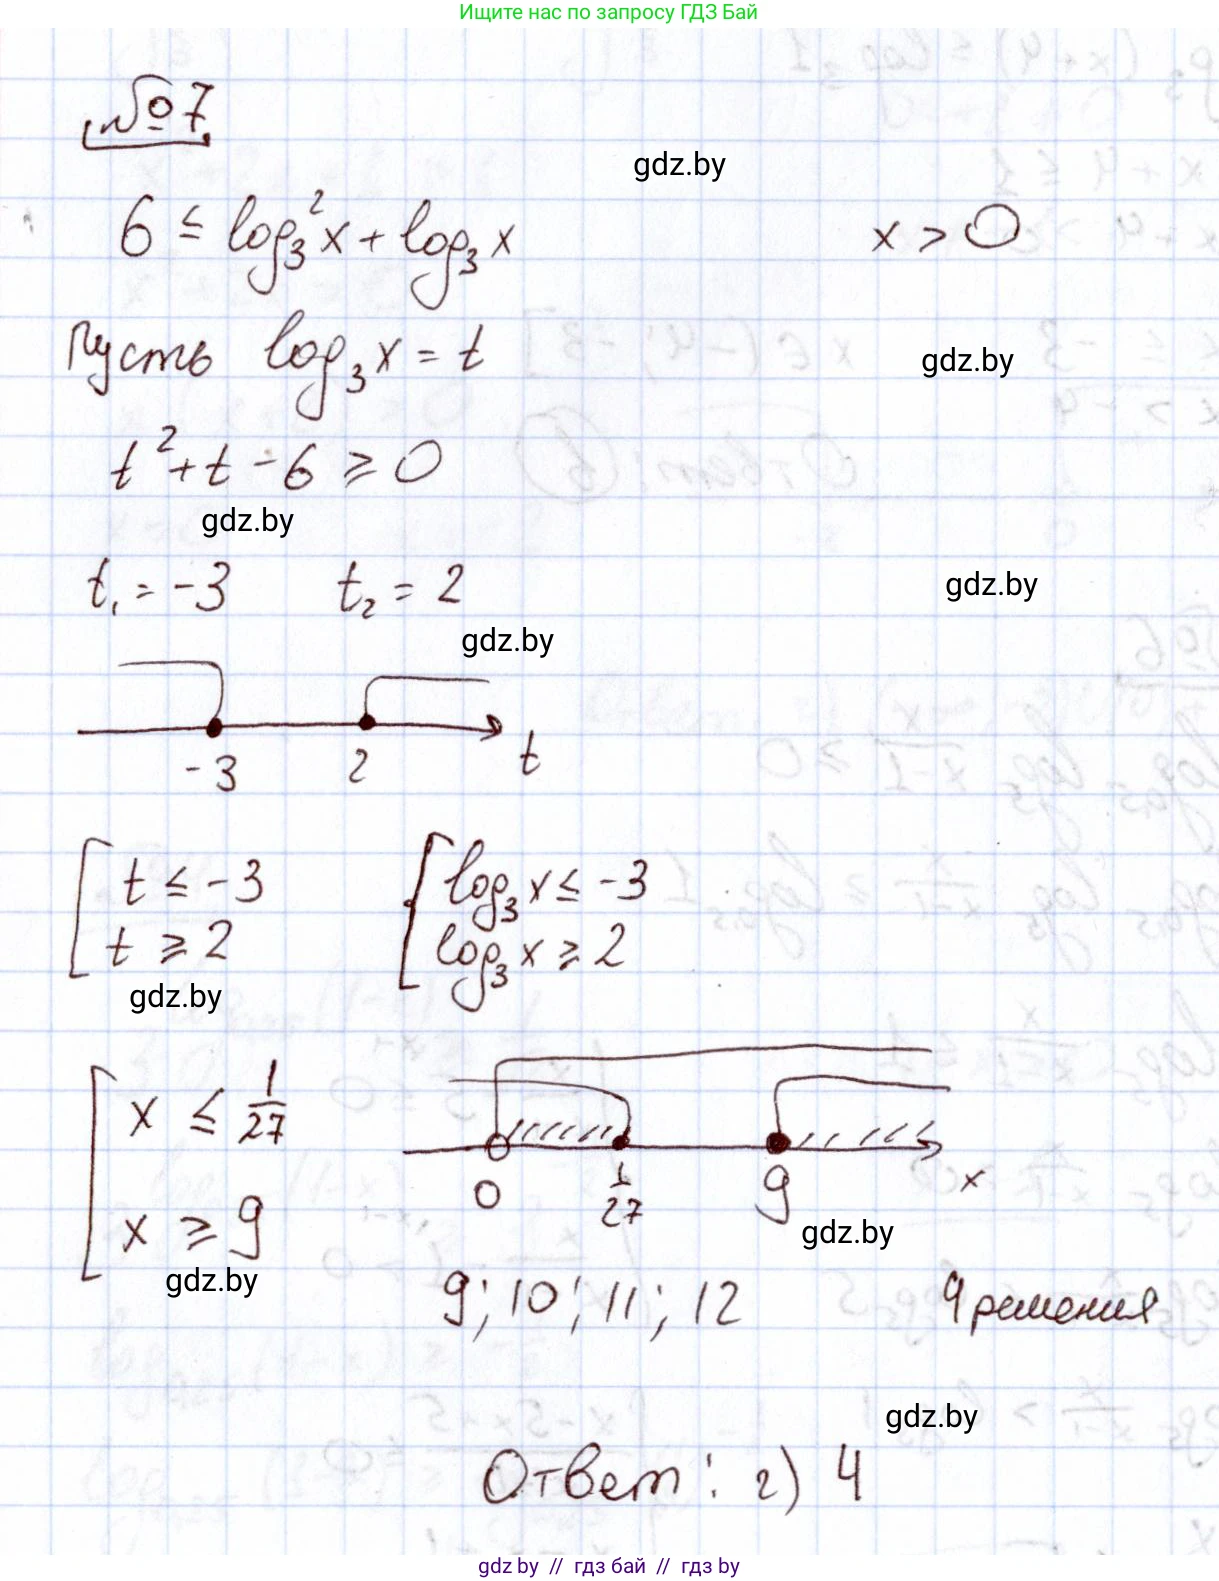 Ищите нас по запросу ГДЗ Бай
№7
gdz.by
6 ≤ log₃²x + log₃x    x > 0
Пусть log₃x = t
gdz.by
t² + t - 6 ≥ 0
gdz.by
t₁ = -3    t₂ = 2
gdz.by
gdz.by
-3    2    t
[ t ≤ -3    [ log₃x ≤ -3
t ≥ 2    log₃x ≥ 2
gdz.by
[ x ≤ 1/27
0    1/27    9    x
x ≥ 9
gdz.by
gdz.by
9; 10; 11; 12    4 решения
gdz.by
Ответ: г) 4
gdz by // гдз бай // гдз by